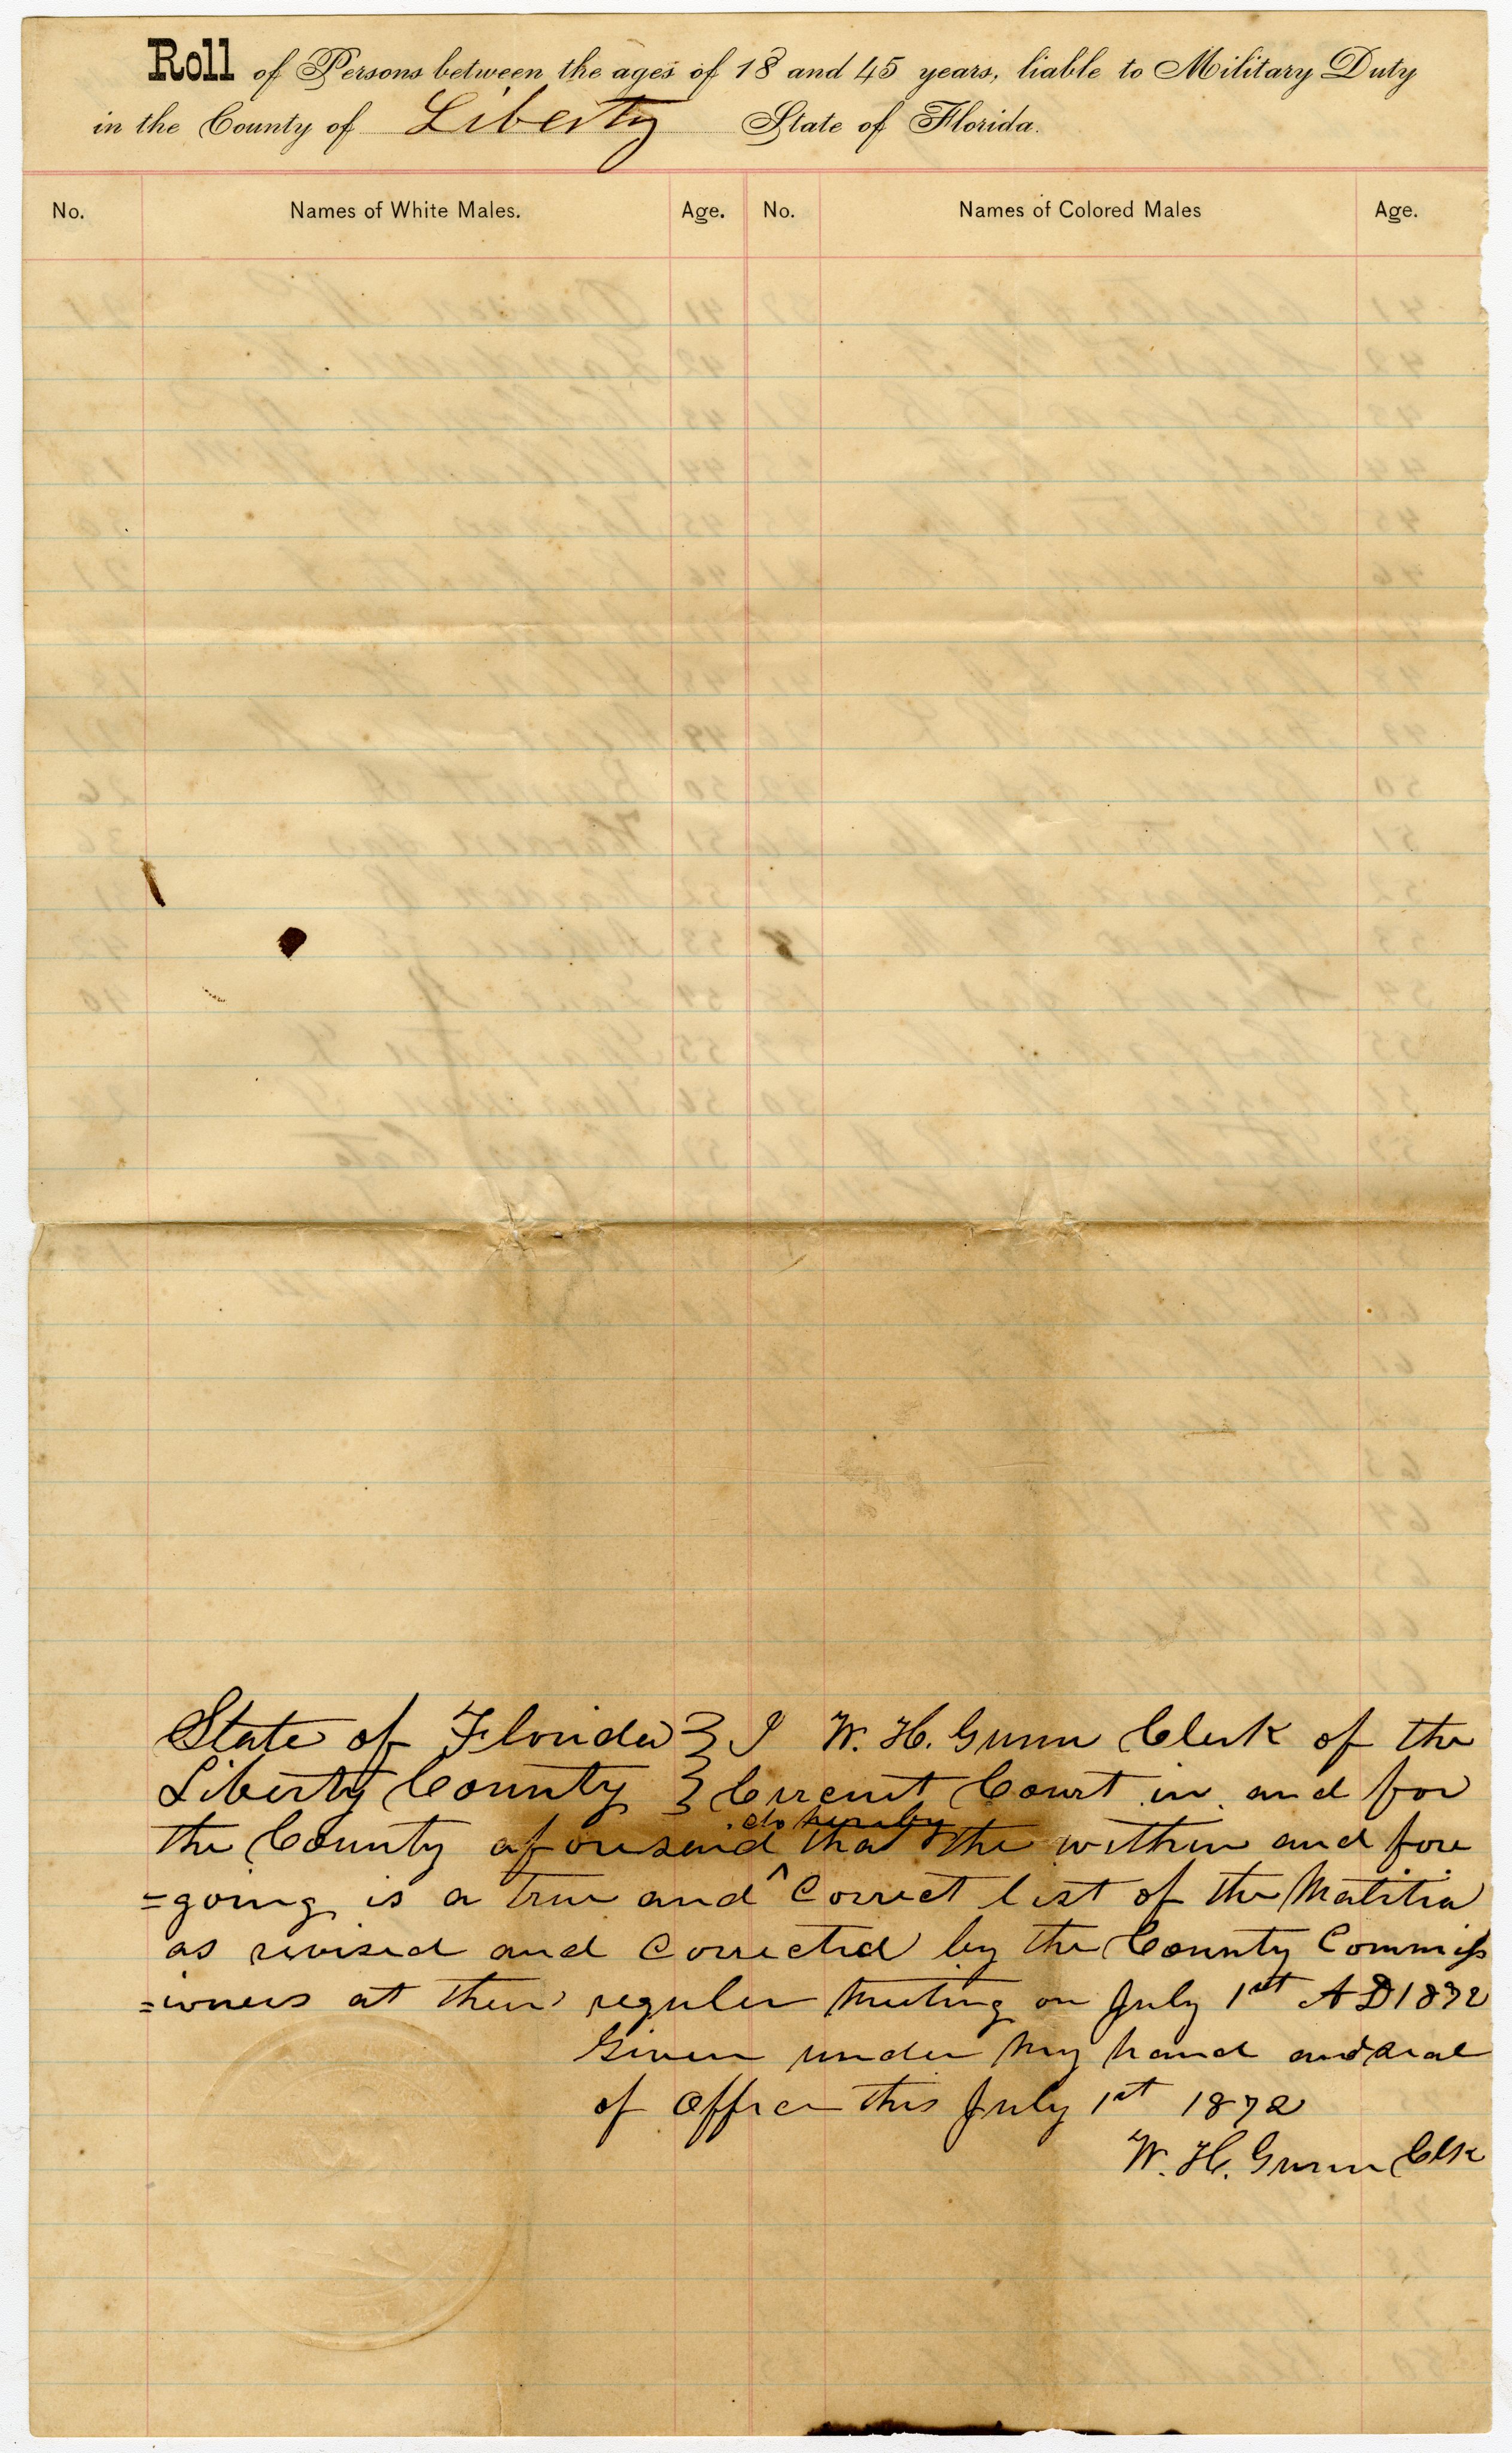 Roll of Persons between the ages of 18 and 45 years, liable to Military Duty
in the County of Liberty State of Florida.
No. Names of White Males. Age. No. Names of Colored Males Age.
State of Florida } I W. H. Gunn Clerk of the
Liberty County } Circuit Court in and for
do hereby
the County aforesaid that the within and fore
=going is a true and ^ Correct list of the Malitia
as revised and Corrected by the County Commiss
=ioners at their regular Meeting on July 1st AD 1872
Given under my hand and seal
of Office this July 1st 1872
W. H. Gunn Clk